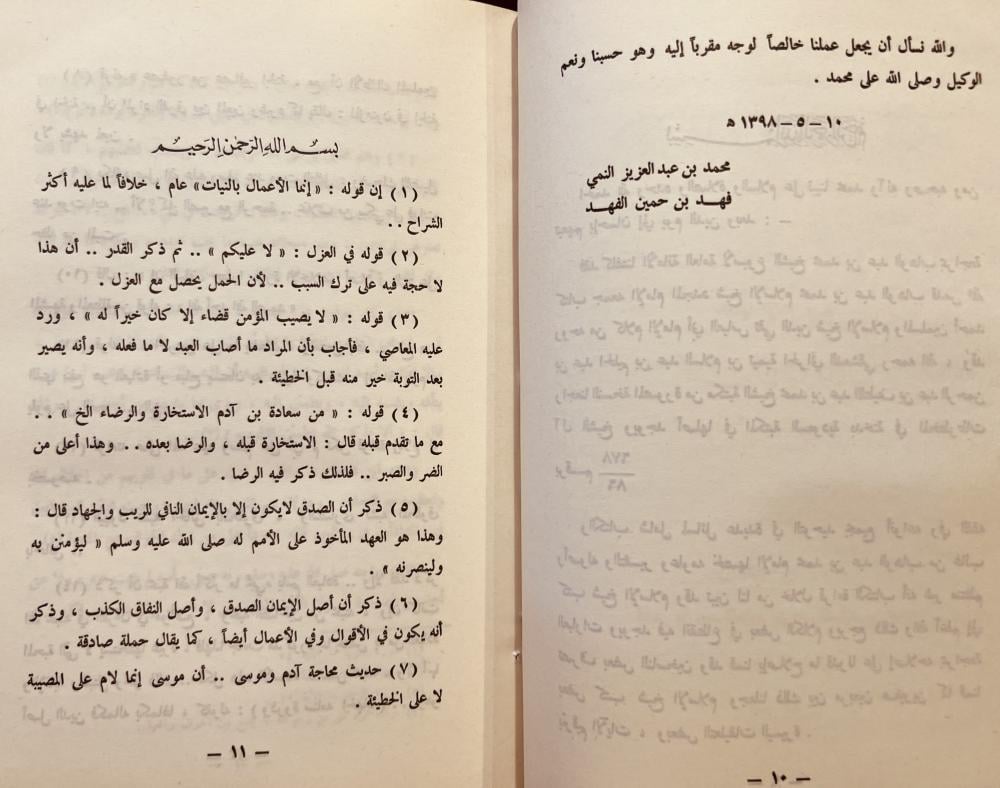 والله نسأل أن يجعل عملنا خالصاً لوجه مقرباً إليه وهو حسبنا ونعم
الوكيل وصلى الله على محمد .
١٠ – ٥ – ١٣٩٨ ه
محمد بن عبدالعزيز النمي
فهد بن حمين الفهد
– ١٠ –
بسم الله الرحمن الرحيم
(١) إن قوله : «إنما الأعمال بالنيات» عام ، خلافاً لما عليه أكثر
الشراح . .
(٢) قوله في العزل : « لا عليكم » . . ثم ذكر القدر . . أن هذا
لا حجة فيه على ترك السبب . . لأن الحمل يحصل مع العزل .
(٣) قوله : « لا يصيب المؤمن قضاء إلا كان خيراً له » ، ورد
عليه المعاصي ، فأجاب بأن المراد ما أصاب العبد لا ما فعله ، وأنه يصير
بعد التوبة خير منه قبل الخطيئة .
(٤) قوله : « من سعادة بن آدم الاستخارة والرضاء الخ » . .
مع ما تقدم قبله قال : الاستخارة قبله ، والرضا بعده . . وهذا أعلى من
الضر والصبر . . فلذلك ذكر فيه الرضا .
(٥) ذكر أن الصدق لايكون إلا بالإيمان النافي للريب والجهاد قال :
وهذا هو العهد المأخوذ على الأمم له صلى الله عليه وسلم « ليؤمنن به
ولينصرنه » .
(٦) ذكر أن أصل الإيمان الصدق ، وأصل النفاق الكذب ، وذكر
أنه يكون في الأقوال وفي الأعمال أيضاً ، كما يقال حملة صادقة .
(٧) حديث محاجة آدم وموسى . . أن موسى إنما لام على المصيبة
لا على الخطيئة .
– ١١ –